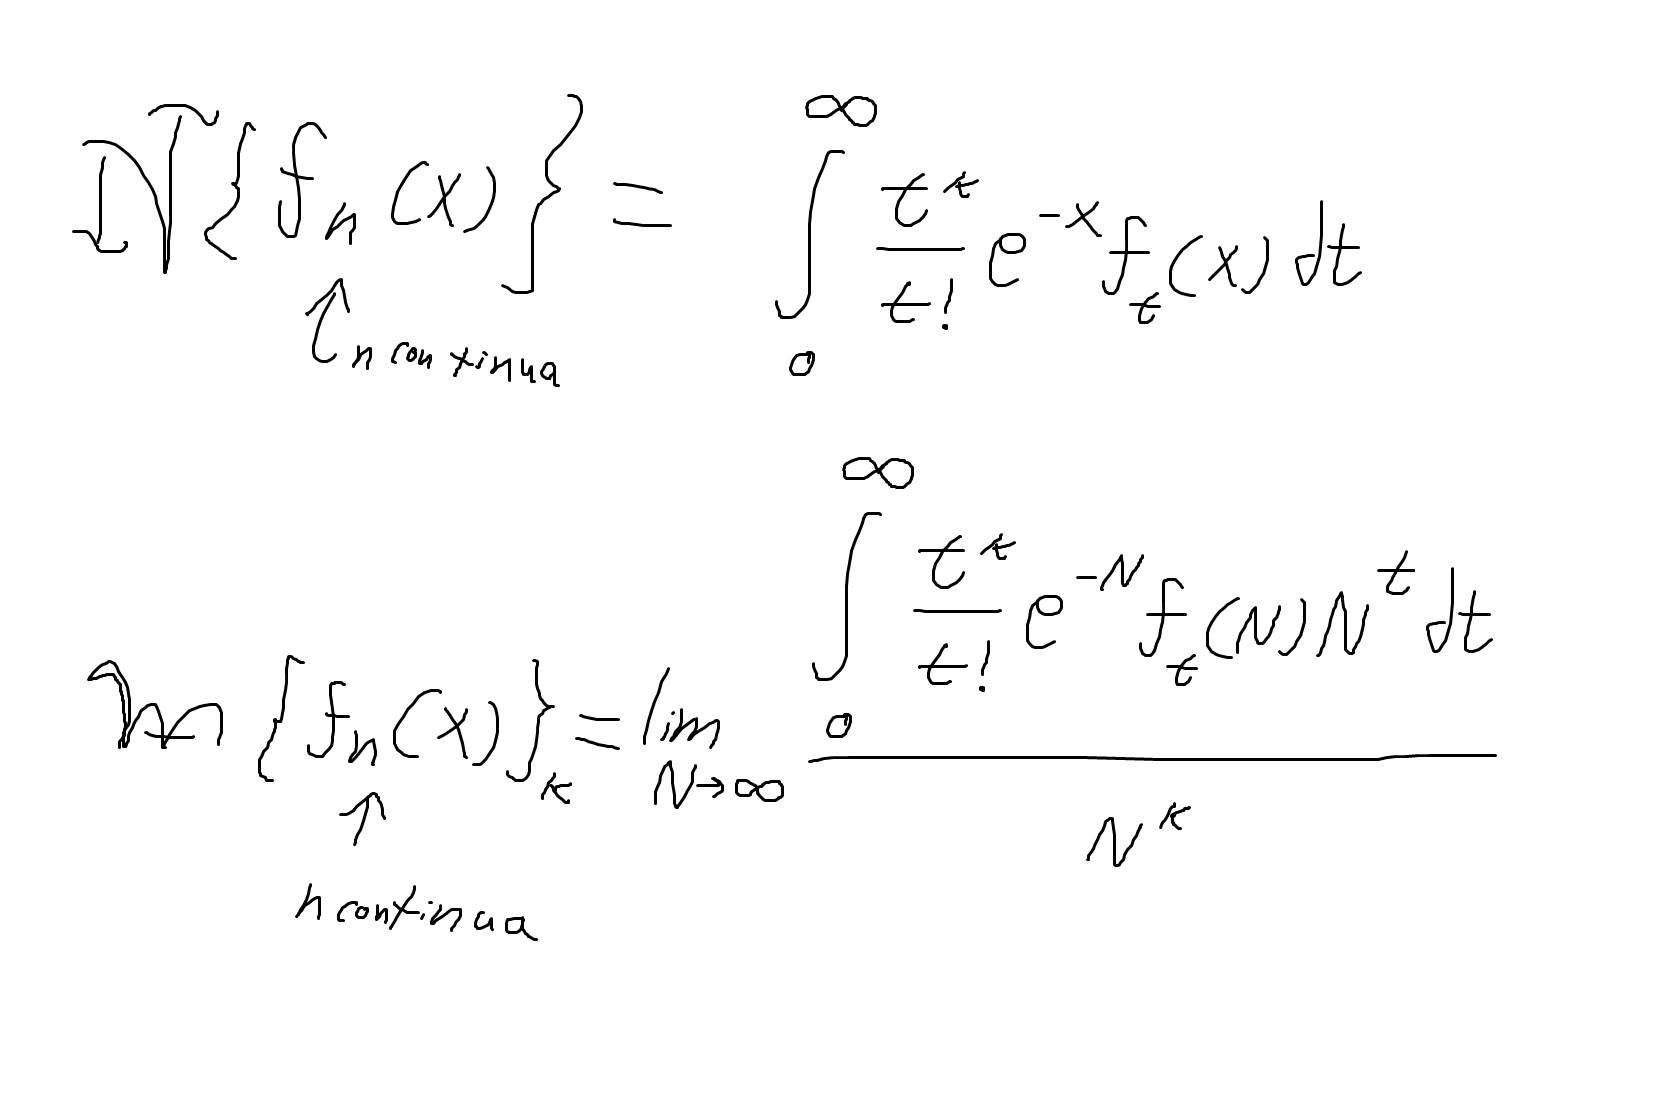 𝒩{fₙ(x)} = ∫₀^∞ t^k/t! e^{-x} f_t(x) dt
n continua
𝓜{fₙ(x)}_k = lim_{N→∞} ∫₀^∞ t^k/t! e^{-N} f_t(N) N^t dt / N^k
n continua